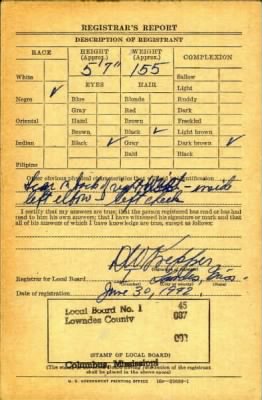 REGISTRAR'S REPORT
DESCRIPTION OF REGISTRANT
RACE HEIGHT (Approx.) WEIGHT (Approx.) COMPLEXION
5'7" 155
White ✓ EYES HAIR Sallow
Light
Negro Blue Blonde Ruddy
Gray Red Dark
Oriental Hazel Brown Freckled
Brown Black ✓ Light brown
Indian Black ✓ Gray Dark brown ✓
Bald Black
Filipino
Other obvious physical characteristics that will aid in identification
inside
left elbow left cheek
I certify that my answers are true; that the person registered has read or has had
read to him his own answers; that I have witnessed his signature or mark and that
all of his answers of which I have knowledge are true, except as follows:
Registrar for Local Board Miss.
Date of registration June 30, 1942
Local Board No. 1 45
Lowndes County 087
Columbus, Mississippi
(STAMP OF LOCAL BOARD)
(The stamp of the Local Board having jurisdiction of the registrant
shall be placed in the above space)
U. S. GOVERNMENT PRINTING OFFICE